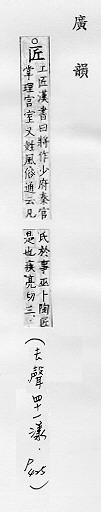 廣韻
匠 工匠漢書曰將作少府秦官
掌理宮室又姓風俗通云凡
氏於事巫卜陶匠
是也疾亮切三
(去聲四十一漾．P425)